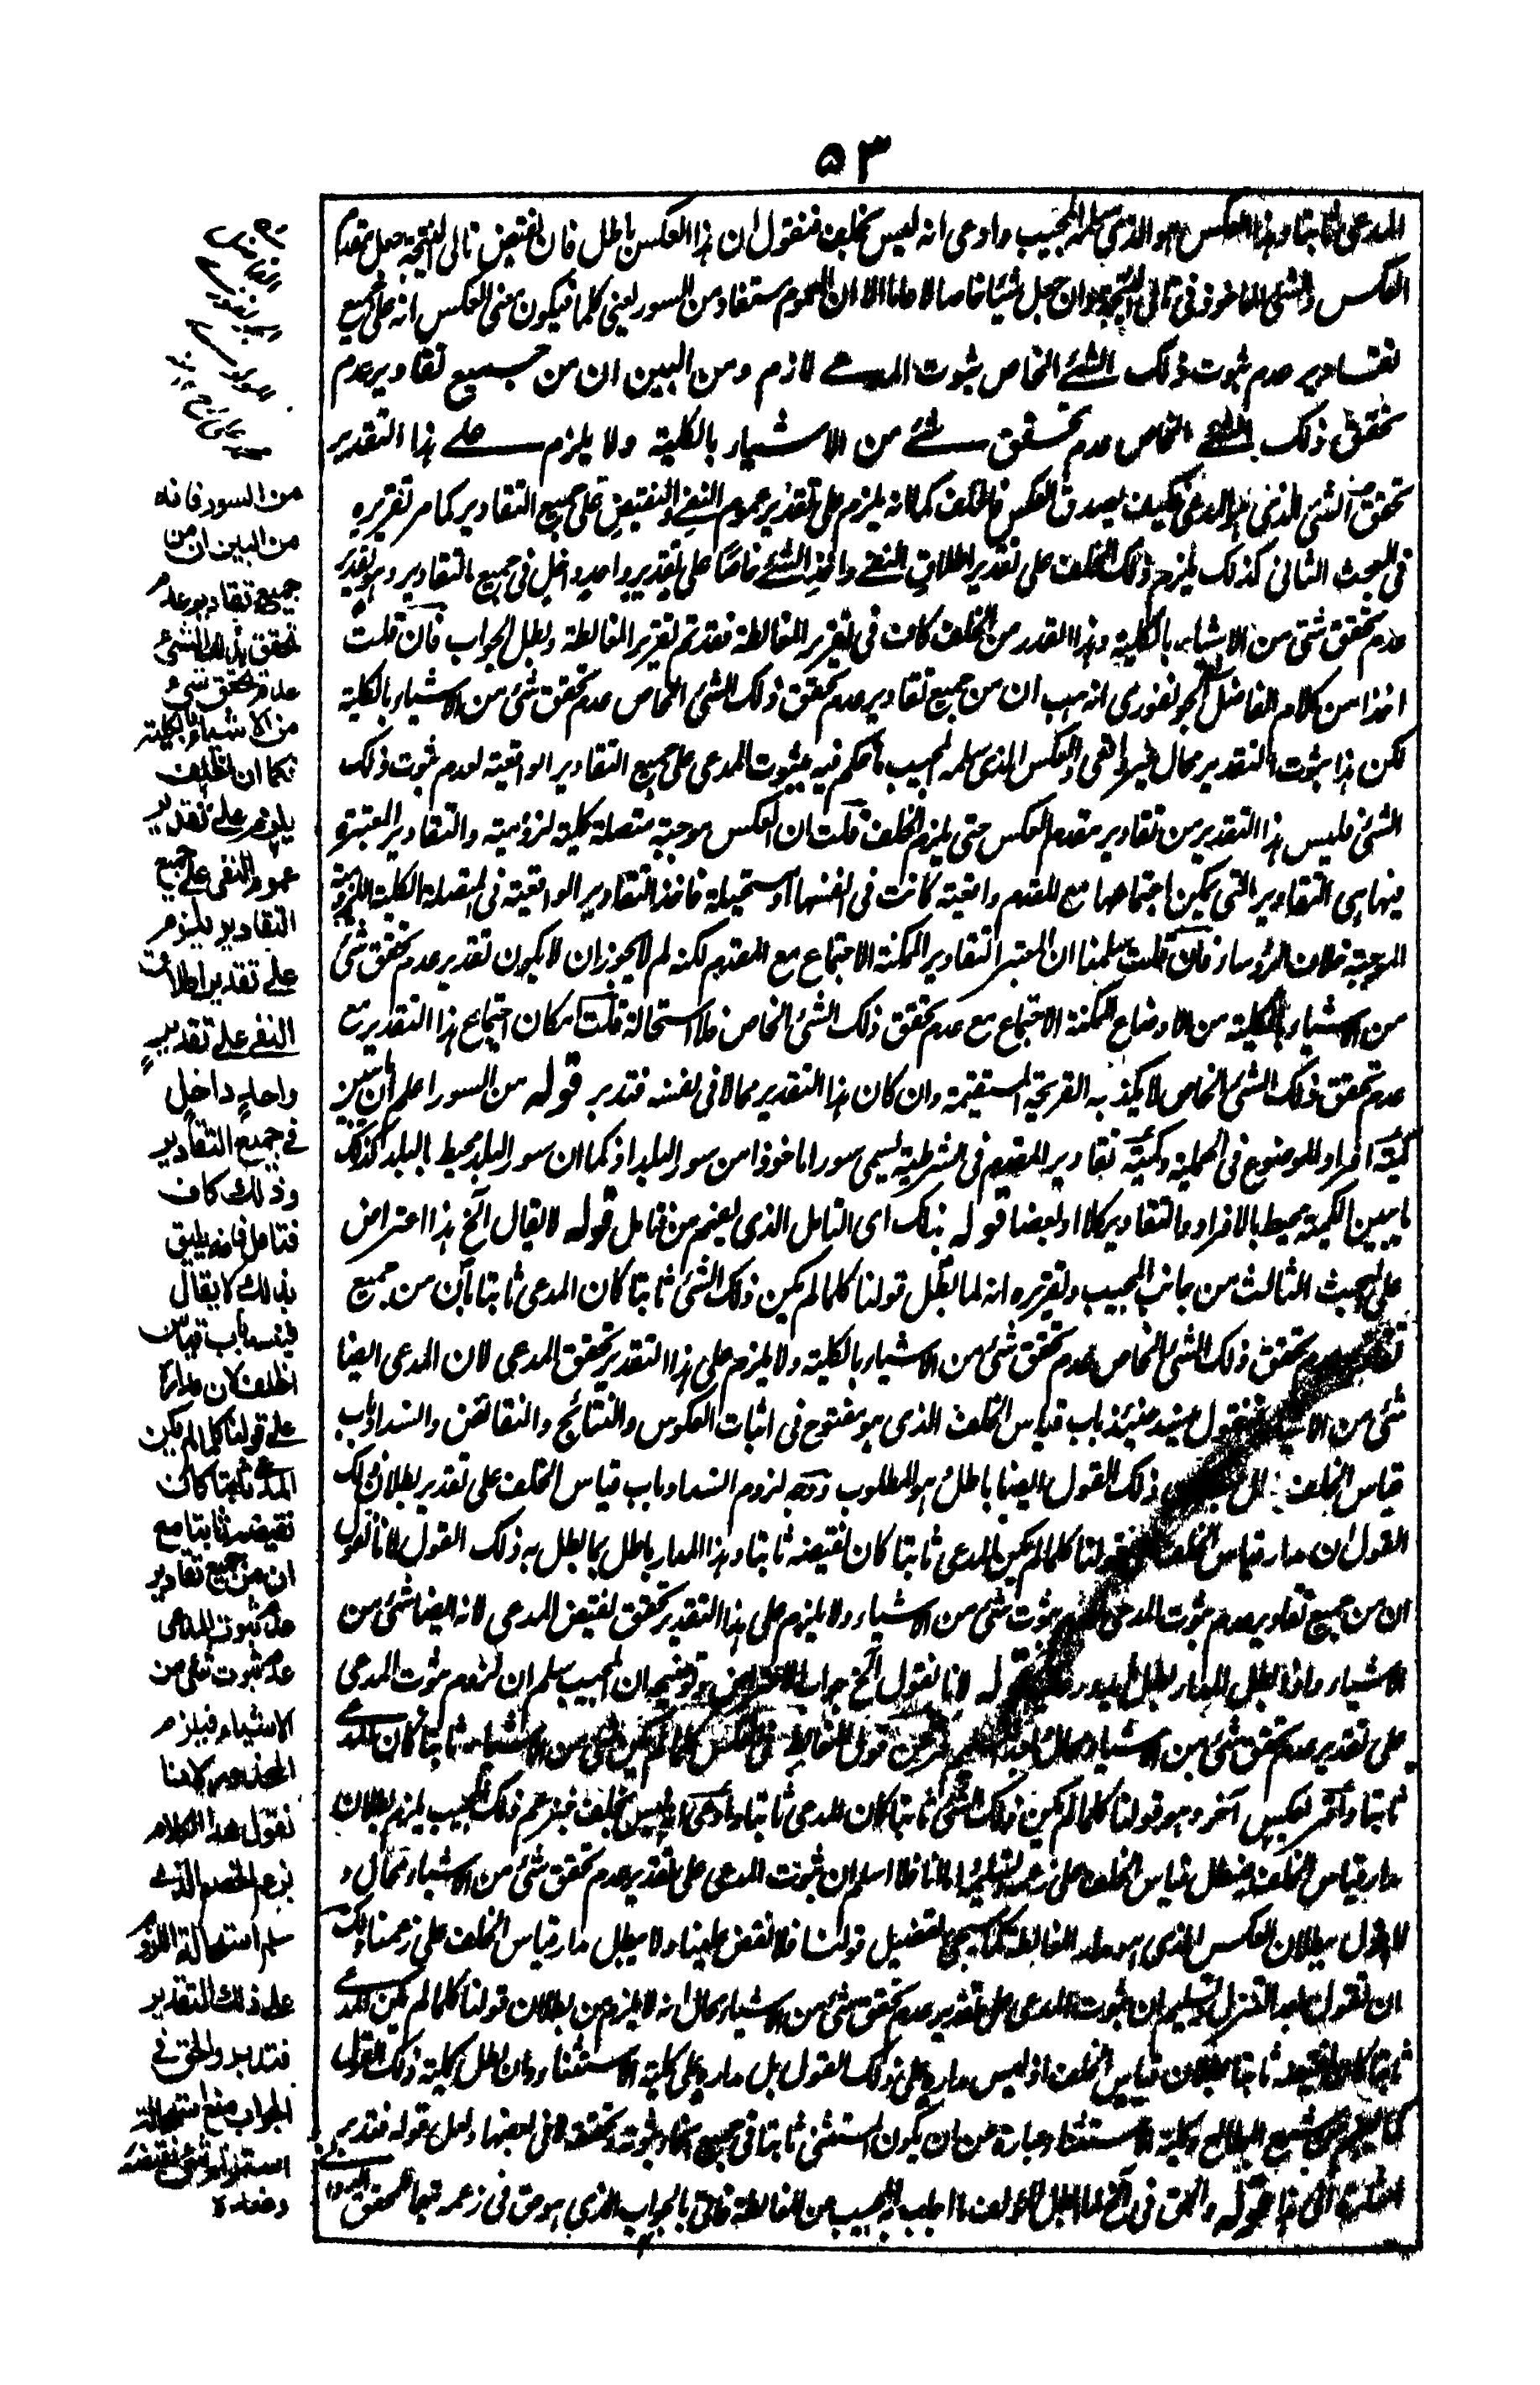 ٥٣
المدعى ثابتا وهذا العكس هو الذى سلمه المجيب وادعى انه ليس بخلف فنقول ان هذا العكس باطل فان نقيض تالى النتيجة جعل مقدم
العكس والشئ الماخوذ فى تالى النتيجة وان جعل شيئا خاصا لا عاما الا ان العموم مستفاد من السور يعنى كلما فيكون معنى العكس انه على جميع
تقادير عدم ثبوت ذلك الشئ الخاص ثبوت المدعى لازم ومن البين ان من جميع تقادير عدم
تحقق ذلك الشئ الخاص عدم تحقق شئ من الاشياء بالكلية ولا يلزم على هذا التقدير
تحقق الشئ الذى هو المدعى فكيف يصدق العكس فالخلف كما انه يلزم على تقدير عموم النفى والنقيض على جميع التقادير كما مر تقريره
فى البحث الثانى كذلك يلزم ذلك الخلف على تقدير اطلاق النفى واخذ الشئ خاصا على تقدير واحد داخل فى جميع التقادير وهو تقدير
عدم تحقق شئ من الاشياء بالكلية وهذا القدر من الخلف كاف فى تقرير المغالطة فقد تم تقرير المغالطة وبطل الجواب فان قلت
اخذا من كلام الفاضل الجونفورى انه هب ان من جميع تقادير عدم تحقق ذلك الشئ الخاص عدم تحقق شئ من الاشياء بالكلية
لكن هذا ثبوت التقدير محال غير واقعى والعكس الذى سلمه المجيب ما حكم فيه بثبوت المدعى على جميع التقادير الواقعية لعدم ثبوت ذلك
الشئ فليس هذا التقدير من تقادير مقدم العكس حتى يلزم الخلف قلت ان العكس موجبة متصلة كلية لزومية والتقادير المعتبرة
فيها هى التقادير التى يمكن اجتماعها مع المقدم واقعية كانت فى انفسها او مستحيلة فاخذ التقادير الواقعية فى المتصلة الكلية اللزومية
الموجبة خلاف الرؤساء فان قلت سلمنا ان المعتبر التقادير الممكنة الاجتماع مع المقدم لكنه لم لا يجوز ان لا يكون تقدير عدم تحقق شئ
من الاشياء بالكلية من الاوضاع الممكنة الاجتماع مع عدم تحقق ذلك الشئ الخاص فلا استحالة قلت امكان اجتماع هذا التقدير مع
عدم تحقق ذلك الشئ الخاص لا يكذبه القريحة المستقيمة وان كان هذا التقدير محالا فى نفسه فتدبر قوله من السور اعلم ان ما يتبين به
كمية افراد الموضوع فى الحملية وكمية تقادير المقدم فى الشرطية يسمى سورا ماخوذا من سور البلد اذ كما ان سور البلد محيط بالبلد كذلك
ما يبين الكمية يحيط بالافراد والتقادير كلا او بعضا قوله بذلك اى التامل الذى يفهم من فتامل قوله لا يقال الخ هذا اعتراض
على البحث الثالث من جانب المجيب وتقريره انه لما بطل قولنا كلما لم يكن ذلك الشئ ثابتا كان المدعى ثابتا بان من جميع
تقادير عدم تحقق ذلك الشئ الخاص عدم تحقق شئ من الاشياء بالكلية ولا يلزم على هذا التقدير تحقق المدعى لان المدعى ايضا
شئ من الاشياء فنقول حينئذ باب قياس الخلف الذى هو مفتوح فى اثبات العكوس والنتائج والنقائض وانسداد باب
قياس الخلف ذلك القول ايضا باطل هو المطلوب ووجه لزوم انسداد باب قياس الخلف على تقدير بطلان ذلك
القول ان مدار قياس الخلف قولنا كلما لم يكن المدعى ثابتا كان نقيضه ثابتا وهذا المدار باطل بما بطل به ذلك القول لانا نقول
ان من جميع تقادير عدم ثبوت المدعى عدم ثبوت شئ من الاشياء ولا يلزم على هذا التقدير تحقق نقيض المدعى لانه ايضا شئ من
الاشياء واذا بطل المدار بطل قوله لانا نقول الخ جواب الاعتراض وتوضيحه ان المجيب سلم ان لزوم ثبوت المدعى
على تقدير عدم تحقق شئ من الاشياء محال قول المغالط فى العكس كلما لم يكن شئ من الاشياء ثابتا كان المدعى
ثابتا واقر بعكس آخر وهو قولنا كلما لم يكن ذلك الشئ ثابتا كان المدعى ثابتا وادعى انه ليس بخلف فبزعم ذلك المجيب يلزم بطلان
مدار قياس الخلف فيبطل قياس الخلف على زعمه اما انا فلا اسلم ان ثبوت المدعى على تقدير عدم تحقق شئ من الاشياء محال و
لا اقول ببطلان العكس الذى هو مدار المغالطة كما سيجئ تفصيل قولنا فلا نقض علينا ولا يبطل مدار قياس الخلف على زعمنا ولك
ان تقول بعد التنزل وتسليم ان ثبوت المدعى على تقدير عدم تحقق شئ من الاشياء محال انه لا يلزم من بطلان قولنا كلما لم يكن المدعى
ثابتا كان نقيضه ثابتا بطلان قياس الخلف اذ ليس مداره على ذلك القول بل مداره على كلية الاستثناء وان بطل كلية ذلك القول
كلية الاستثناء عبارة عن ان يكون المستثنى ثابتا فى جميع وتحققه لا فى بعضها ولعل قوله فتدبر
قوله والحق فى الخ عن المغالطة فاتى بالجواب الذى هو حق فى زعمه تبعا للمحقق
من السور فانه
من البين ان من
جميع تقادير عدم
تحقق ذلك الشئ
عدم تحقق شئ
من الاشياء بالكلية
فكما ان الخلف
يلزم على تقدير
عموم النفى على جميع
التقادير يلزم
على تقدير اطلاق
النفى على تقدير
واحد داخل
فى جميع التقادير
وذلك كاف
فتامل فانه يليق
بذلك لا يقال
فينسد باب قياس
الخلف لان مداره
على قولنا كلما لم يكن
المدعى ثابتا كان
نقيضه ثابتا مع
ان من جميع تقادير
عدم ثبوت المدعى
عدم ثبوت شئ من
الاشياء فيلزم
المحذور لانا
نقول هذا الكلام
بزعم الخصم الذى
سلم استحالة اللزوم
على ذلك التقدير
فتدبر والحق فى
الجواب منع استحالة
استلزام شئ نقيضه